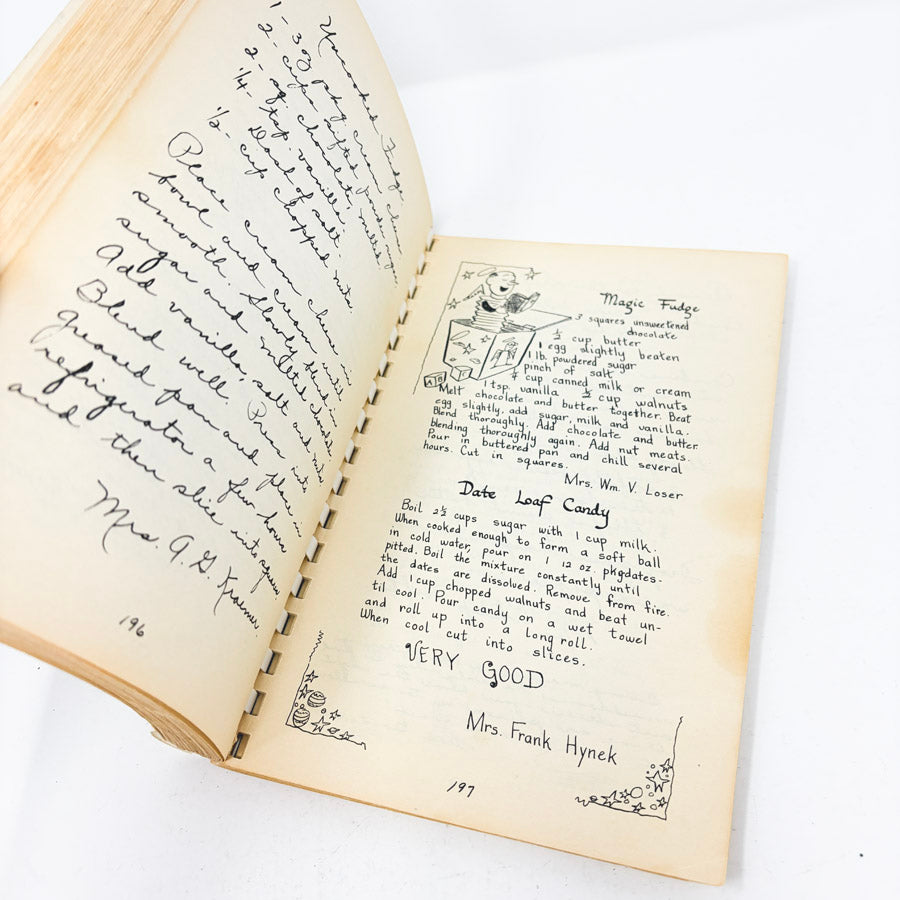 Uncooked Fudge
1- 3 oz pkg cream cheese
2- cups sifted powder sugar
2- sq. chocolate, melted
1/4- tsp. vanilla
Dash of salt
1/2- cup chopped nuts
Place cream cheese in
bowl and cream until
smooth. Slowly blend in
sugar and melted chocolate.
Add vanilla, salt and nuts
Blend well. Press into
greased pan and place in
refrigerator a few hours
and then slice into squares
Mrs. A. G. Kraemer.
196
Magic Fudge
3 squares unsweetened
chocolate
½ cup butter
1 egg slightly beaten
1 lb. powdered sugar
pinch of salt
¼ cup canned milk or cream
1 tsp. vanilla ½ cup walnuts
Melt chocolate and butter together. Beat
egg slightly, add sugar, milk and vanilla.
Blend thoroughly. Add chocolate and butter
blending thoroughly again. Add nut meats.
Pour in buttered pan and chill several
hours. Cut in squares.
Mrs. Wm. V. Loser
A B
Date Loaf Candy
Boil 2½ cups sugar with 1 cup milk.
When cooked enough to form a soft ball
in cold water, pour on 1 12 oz. pkg dates-
pitted. Boil the mixture constantly until
the dates are dissolved. Remove from fire.
Add 1 cup chopped walnuts and beat un-
til cool. Pour candy on a wet towel
and roll up into a long roll.
When cool cut into slices.
VERY GOOD
Mrs. Frank Hynek
197